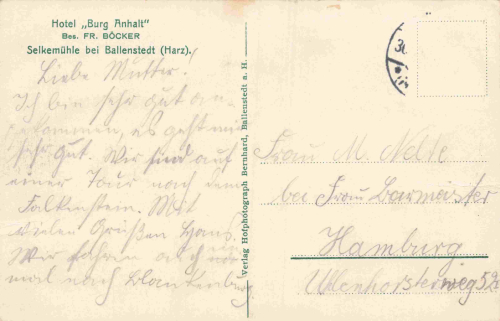 Hotel „Burg Anhalt"
Bes. FR. BÖCKER
Selkemühle bei Ballenstedt (Harz).
Liebe Mutter!
Ich bin sehr gut an-
gekommen, es geht mir
sehr gut. Wir sind auf
einer Tour nach dem
Falkenstein. Mit
vielen Grüßen Hans.
Wir fahren
mal nach Blankenburg
Verlag Hofphotograph Bernhard, Ballenstedt a. H.
Frau M. Nelle
bei Frau Barmeister
Hamburg
Uhlenhorsterweg 52